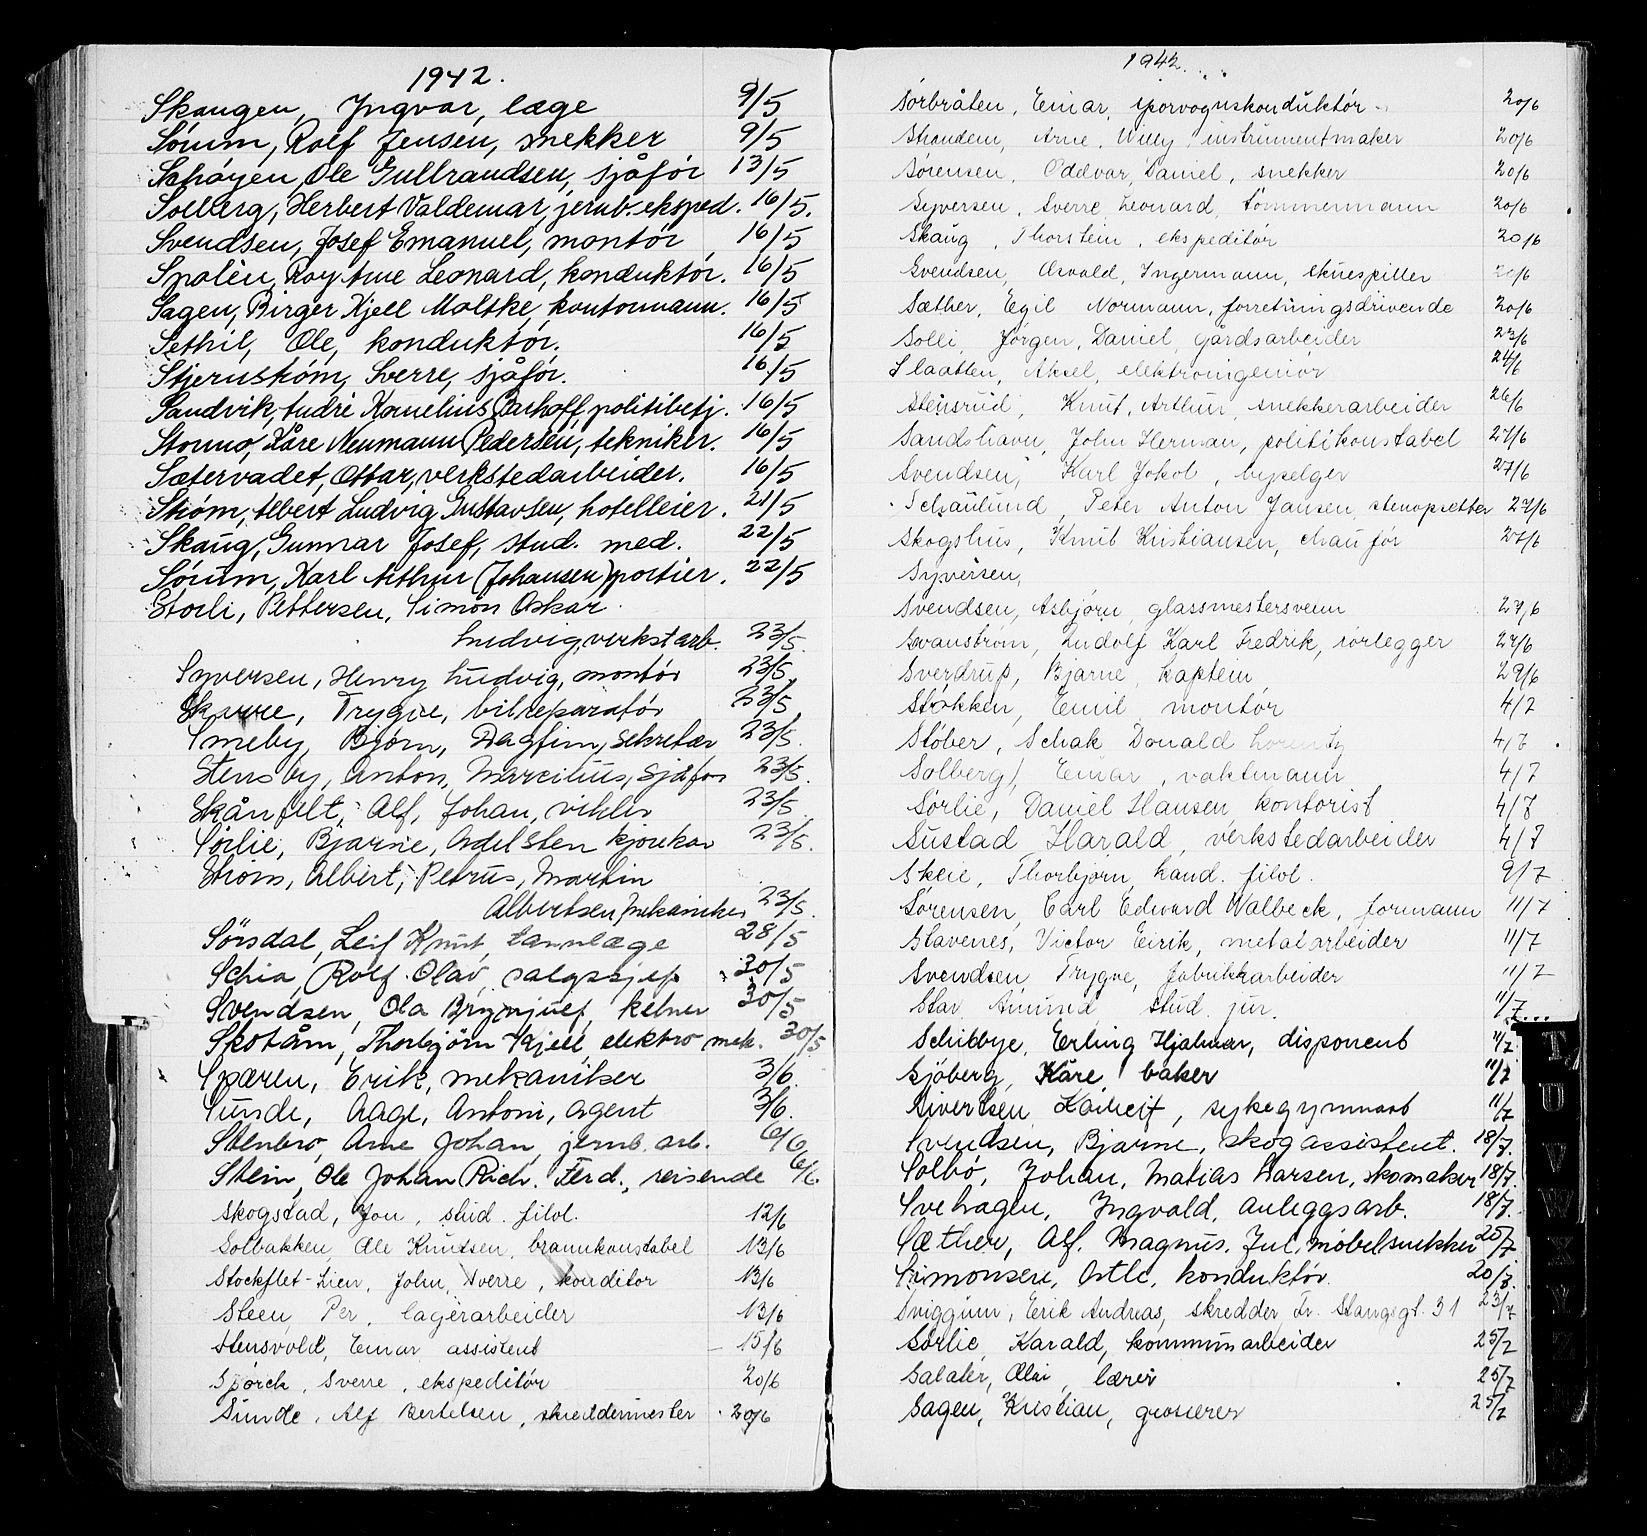 1942.
Skaugen, Yngvar, læge 9/5
Sörum, Rolf Jensen, snekker 9/5
Schöyen, Ole Gulbrandsen, sjåför 13/5
Solberg, Herbert Valdemar, jernb. eksped. 16/5.
Svendsen, Josef Emanuel, montör 16/5
Spolén, Roy Arne Leonard, konduktör. 16/5
Sagen, Birger Kjell Moltke, kontormann. 16/5
Sethil, Ole, konduktör. 16/5
Stjernström, Sverre, sjåför. 16/5
Sandvik, André Kornelius politibetj. 16/5
Stormo, Kåre Neumann Pedersen, tekniker. 16/5
Sætervadet, Ottar, verkstedarbeider. 16/5
Ström, Albert Ludvig Gustavsen, hotelleier. 21/5
Skaug, Gunnar Josef, stud. med. 22/5
Sörum, Karl Arthur (Johansen) portier. 22/5
Storli, Pettersen, Simon Oskar
Ludvig, verkst arb. 23/5.
Syversen, Henry Ludvig, montör 23/5
Trygve, bilreparatör 23/5
Smeby, Bjørn, Dagfinn, sekretær 23/5.
Stensby, Anton, Marcilius, sjåför 23/5.
Skånfelt, Alf, Johan, vikler 23/5
Sörlie, Bjarne, Adelsten 23/5.
Ström, Albert, Petrus, Martin
Albertsen, mekaniker 23/5.
Sörsdal, Leif Knut, tannlæge 28/5
Schia, Rolf Olav, salgssjef 30/5
Svendsen, Ola Brynjulf, kelner 30/5
Skotåm, Thorbjörn Kjell, elektro mek. 30/5
Sparen, Erik, mekaniker 3/6
Sunde, Aage, Antoni, agent 3/6.
Stenbro, Arne Johan, jernb. arb. 6/6
Stein, Ole Johan Rich. Ferd., reisende 6/6
Skogstad, Jon, stud. filol. 12/6
Solbakken, Ole Knutsen, brannkonstabel 13/6
Stockflet-Lien, John, Sverre, konditor 13/6
Steen, Per, lagerarbeider 13/6
Stensvold, Einar assistent 15/6
Spörck, Sverre, ekspeditör 20/6
Sunde, Alf Bertelsen, skreddermester 20/6
1942.
Sörbråten, Einar, sporvognskonduktör 20/6
Strandem, Arne, Willy, instrumentmaker 20/6
Sörensen, Oddvar, Daniel, snekker 20/6
Syversen, Sverre Leonard, Tömmermann 20/6
Skaug, Thorstein, ekspeditör 20/6
Svendsen, Osvald, Ingermann, skuespiller 20/6
Sæther, Egil Normann, forretningsdrivende 20/6
Solli, Jörgen, Daniel, gårdsarbeider 23/6
Slaatten, Aksel, elektroingeniör 24/6
Stensrud, Knut, Arthur, snekkerarbeider 26/6
Sandshavn, John Herman, politikonstabel 27/6
Svendsen, Karl Jokob, byselger 27/6
Schaulund, Peter Anton Jansen, stenopsetter 27/6
Skogshus, Knut Kristiansen, chauför 27/6
Syversen,
Svendsen, Asbjörn, glassmestersvenn 27/6
Svanström, Ludolf Karl Fredrik, rörlegger 27/6
Sverdrup, Bjarne, kaptein 29/6
Stökken, Emil montör 4/7
Stöber, Schak Donald Lorentz 4/7
Solberg, Einar, vaktmann 4/7
Sörlie, Daniel Hansen, kontorist 4/7
Sustad Harald, verkstedarbeider 4/7
Skeie, Thorbjörn, kand. filol. 9/7
Sörensen, Carl Edward Walbeck, formann 11/7
Slavenes, Victor Eirik, metalarbeider 11/7
Svendsen, Trygve, fabrikkarbeider 11/7
Stav, Amund stud. jur. 11/7
Schibbye, Erling Hjalmar, disponent 11/7
Sjöberg, Kåre, baker 11/7
Sivertsen sykegymnast 11/7
Svendsen, Bjarne, skogassistent. 18/7.
Solbö, Johan, Matias Larsen, skomaker 18/7.
Svehagen, Ingvald, anleggsarb. 18/7.
Sæther, Alf. Magnus, Jul, möbelsnekker 20/7
Simonsen, Atle, konduktör. 20/7.
Sviggum, Erik Andreas, skredder, Fr. Stangsgt. 31 23/7
Sörlie, Harald, kommunarbeider 25/7
Salater, Olai, lærer 25/7
Sagen, Kristian, grosserer 25/7
T
U
V
W
X
Y
Z
Æ
Ø